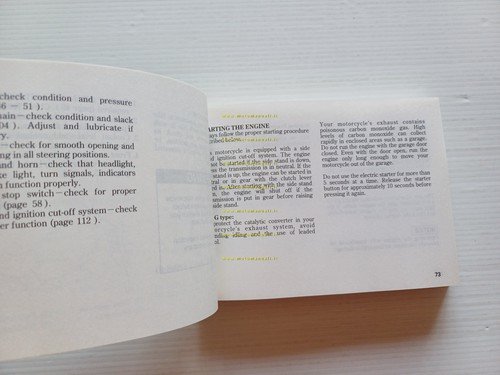 check condition and pressure
6 — 51 ).
ain—check condition and slack
04 ). Adjust and lubricate if
ry.
check for smooth opening and
ng in all steering positions.
and horn—check that headlight,
ke light, turn signals, indicators
n function properly.
stop switch—check for proper
(page 58 ).
nd ignition cut-off system—check
er function (page 112 ).
www.motomanuals.it
ARTING THE ENGINE
ays follow the proper starting procedure
ribed below.
motorcycle is equipped with a side
d ignition cut-off system. The engine
be started if the side stand is down,
s the transmission is in neutral. If the
stand is up, the engine can be started in
ral or in gear with the clutch lever
ed in. After starting with the side stand
n, the engine will shut off if the
smission is put in gear before raising
side stand.
G type:
protect the catalytic converter in your
orcycle's exhaust system, avoid
nded idling and the use of leaded
ol.
Your motorcycle's exhaust contains
poisonous carbon monoxide gas. High
levels of carbon monoxide can collect
rapidly in enclosed areas such as a garage.
Do not run the engine with the garage door
closed. Even with the door open, run the
engine only long enough to move your
motorcycle out of the garage.
Do not use the electric starter for more than
5 seconds at a time. Release the starter
button for approximately 10 seconds before
pressing it again.
73